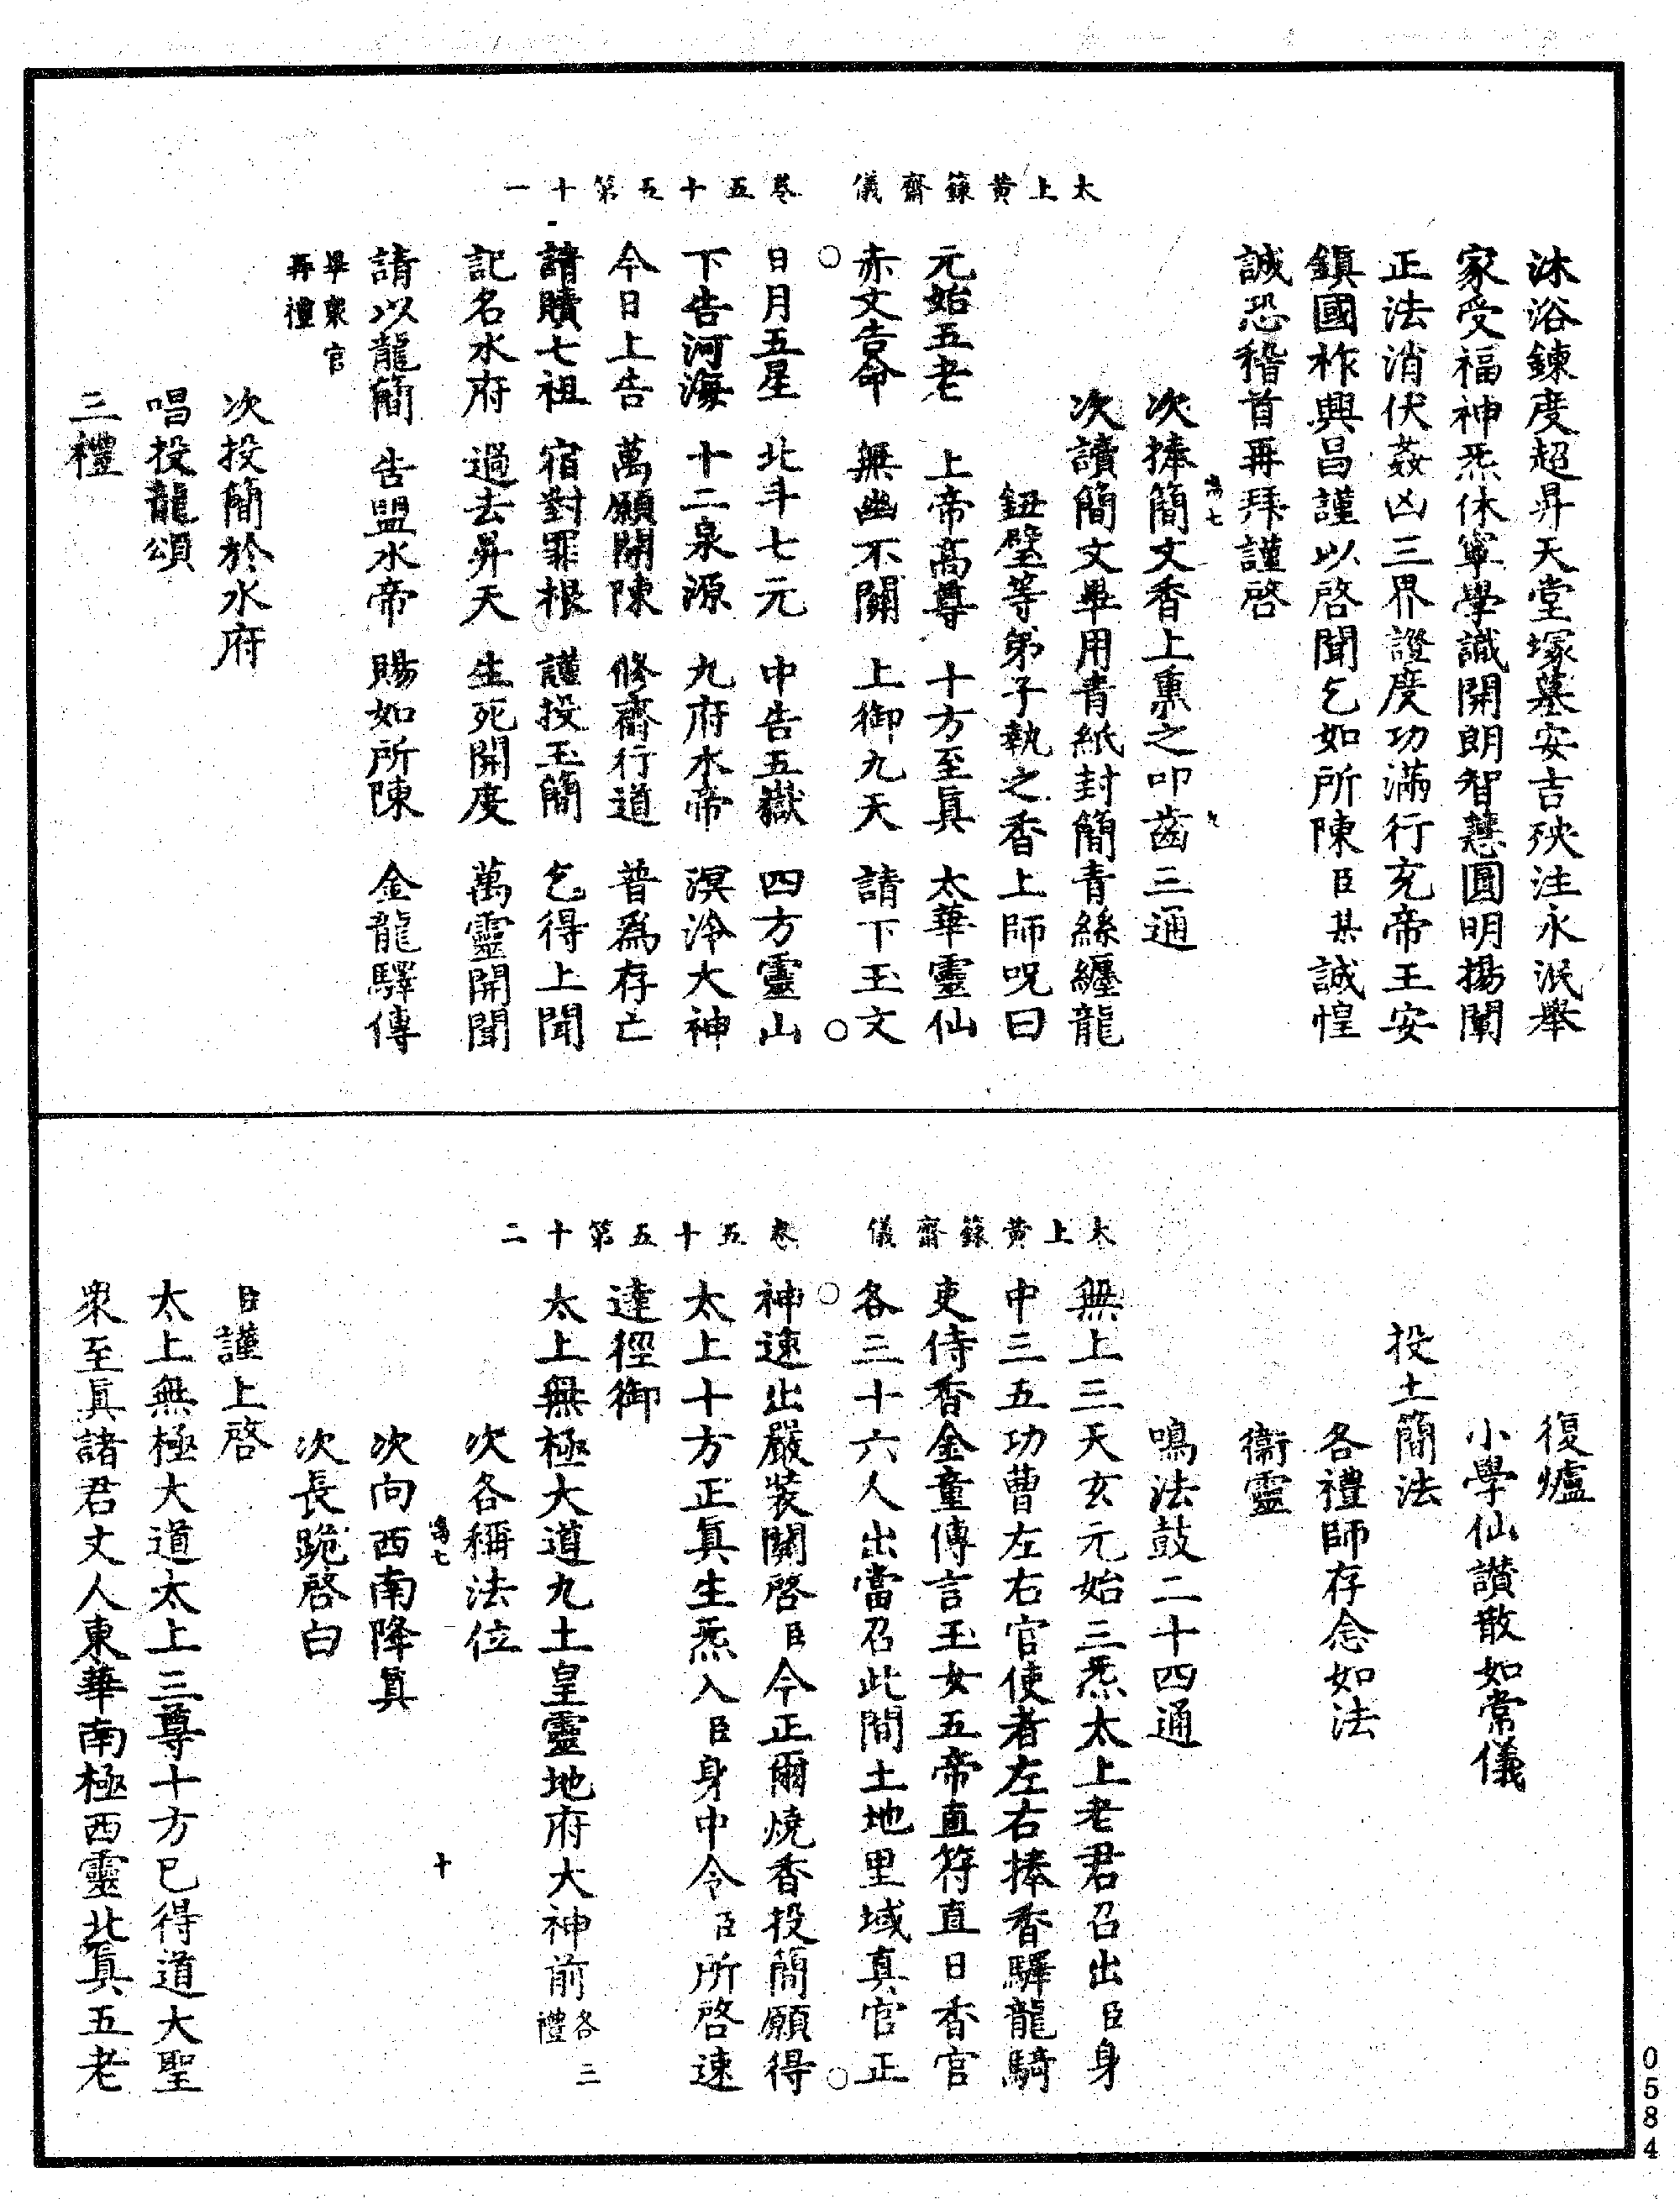 沐浴鍊度超昇天堂塚墓安吉殃注永泯舉
家受福神炁休寧學識開朗智慧圓明揚闡
正法消伏姦凶三界證度功滿行充帝王安
鎮國祚興昌謹以啓聞乞如所陳臣某誠惶
誠恐稽首再拜謹啓
次捧簡文香上熏之叩齒三通
次讀簡文畢用青紙封簡青絲纏龍
鈕璧等弟子執之香上師呪曰
元始五老 上帝高尊 十方至真 太華靈仙
赤文告命 無幽不關 上御九天 請下玉文
太上黃籙齋儀 卷五十五第十一
日月五星 北斗七元 中告五嶽 四方靈山
下告河海 十二泉源 九府水帝 溟泠大神
今日上告 萬願開陳 修齋行道 普為存亡
請贖七祖 宿對罪根 謹投玉簡 乞得上聞
記名水府 過去昇天 生死開度 萬靈開聞
請以龍簡 告盟水帝 賜如所陳 金龍驛傳
畢衆官
再禮
次投簡於水府
唱投龍頌
三禮
復爐
小學仙讚散如常儀
投土簡法
各禮師存念如法
衞靈
鳴法鼓二十四通
無上三天玄元始三炁太上老君召出臣身
中三五功曹左右官使者左右捧香驛龍騎
吏侍香金童傳言玉女五帝直符直日香官
各三十六人出當召此間土地里域真官正
太上黃籙齋儀 卷五十五第十二
神速出嚴裝關啓臣今正爾燒香投簡願得
太上十方正真生炁入臣身中令臣所啓速
達徑御
太上無極大道九土皇靈地府大神前各三禮
次各稱法位
次向西南降真
十
次長跪啓白
臣謹上啓
太上無極大道太上三尊十方已得道大聖
衆至真諸君丈人東華南極西靈北真五老
0584